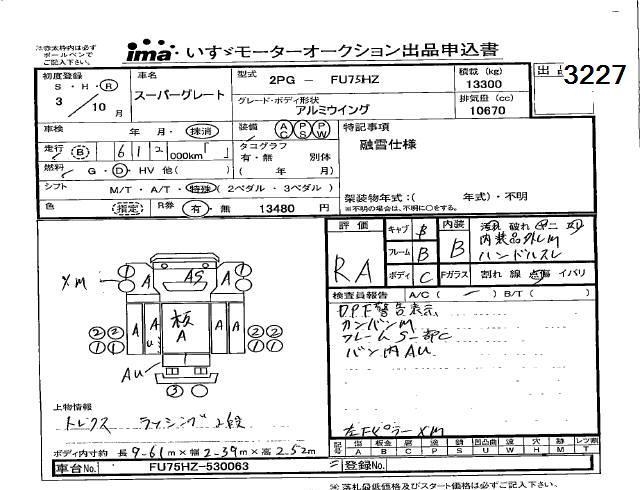 ima いすゞモーターオークション出品申込書
3227
ボールペンで
ご記入下さい。
初度登録
S ・ H ・ R
3 10 月
車名
スーパーグレート
型式 2PG - FU75HZ
グレード・ボディ形状
アルミウイング
積載 (kg)
13300
排気量 (cc)
10670
車検 年 月・抹消
装備 AC PS PW
特記事項
融雪仕様
走行 B 612 000km「 」
タコグラフ
有・無 別体
( 年 月)
燃料 G ・ D ・ HV 他 ( )
シフト M/T ・ A/T ・ 特殊 ( 2ペダル ・ 3ペダル )
架装物年式:( 年式)・不明
※不明の場合は、不明に○をする。
色 指定 R券 有 ・ 無 13480 円
評価 RA
キャブ B
フレーム B
ボディ C
内装 B
内装品外しM
ハンドルスレ
Fガラス 割れ 線 点傷 イバリ
検査員報告 A/C ( ー ) B/T ( )
DPF警告表示
カンバンM
フレームS一部C
バン内AU
左FピラーXM
XM
AS
A A
板
A
A A A A
U
AU
上物情報
トレクス ラッシング2段
ボディ内寸約 長9-61m×幅2-39m×高2.52m
記号 傷 板金 腐 錆 凹 穴 レンズ割
A B C P S U W H M T
車台No. FU75HZ-530063
登録No.
※ 落札最低価格及びスタート価格は必ずご記入下さい。